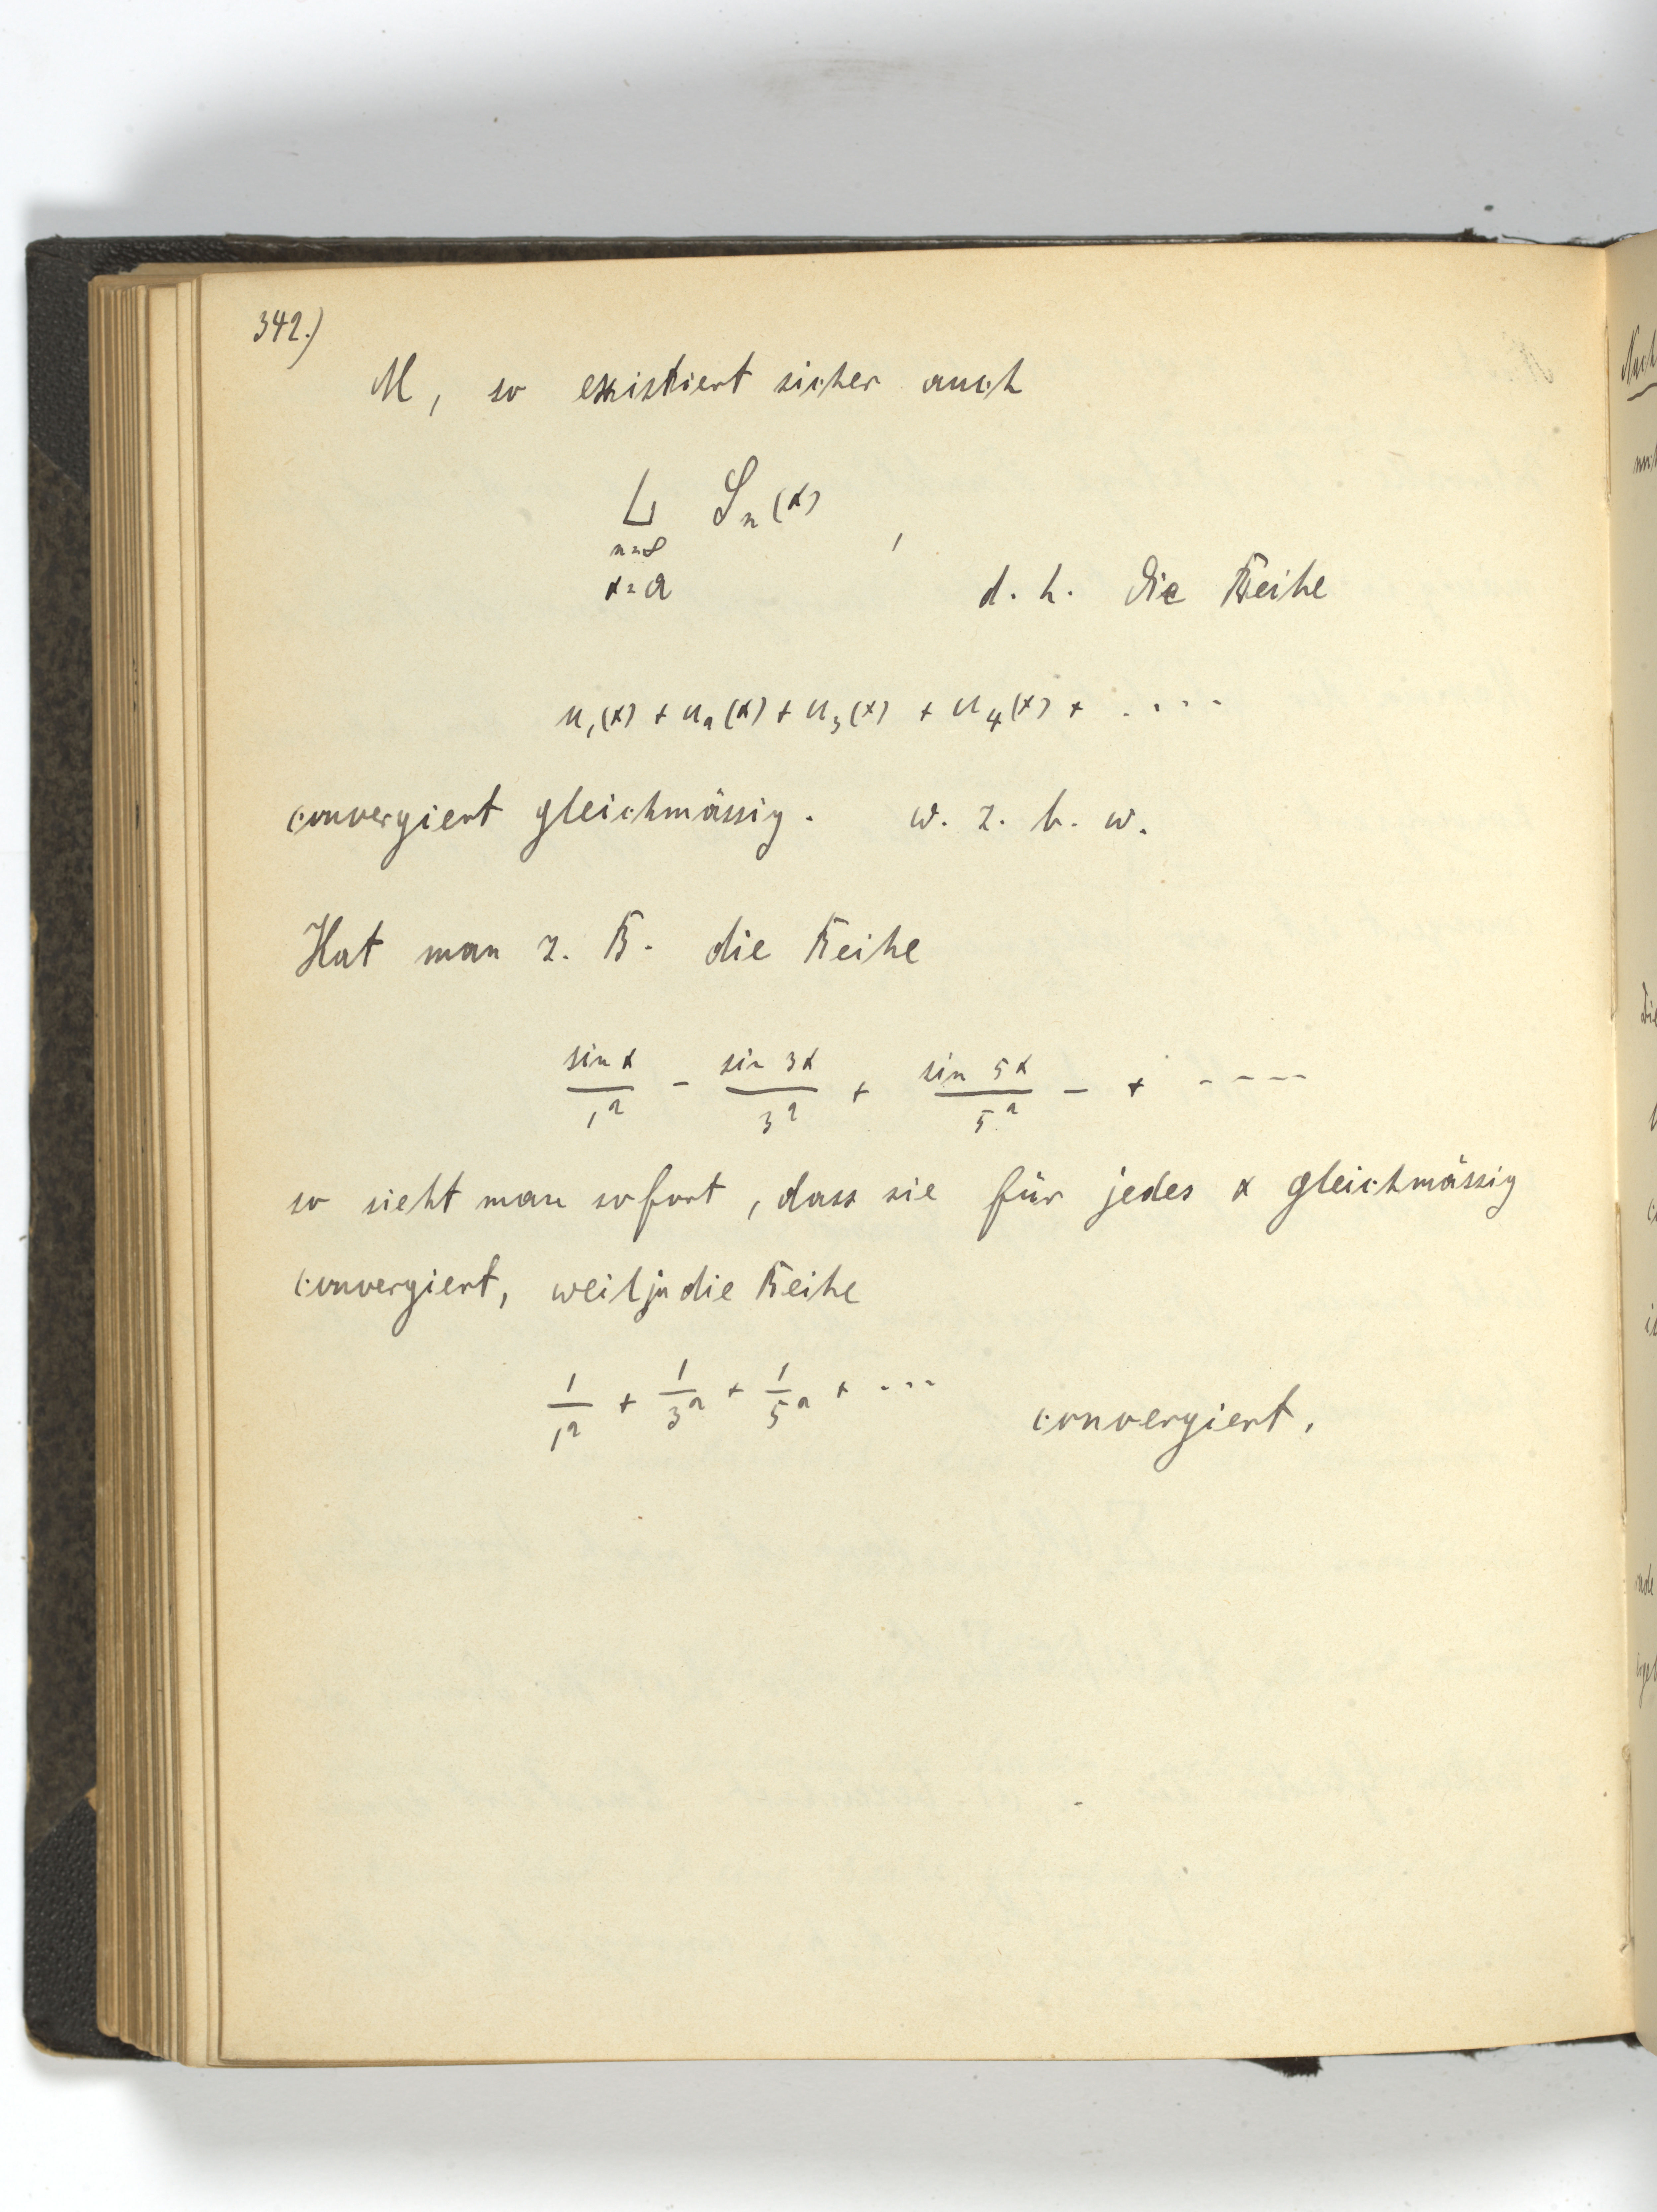 342.)
M, so existiert sicher auch
L S_n(x) ,
n=∞
x=a
d. h. die Reihe
u_1(x) + u_2(x) + u_3(x) + u_4(x) + ....
convergiert gleichmässig. w. z. b. w.
Hat man z. B. die Reihe
sin x / 1^2 - sin 3x / 3^2 + sin 5x / 5^2 - + ----
so sieht man sofort, dass sie für jedes x gleichmässig
convergiert, weil ja die Reihe
1/1^2 + 1/3^2 + 1/5^2 + ... convergiert.